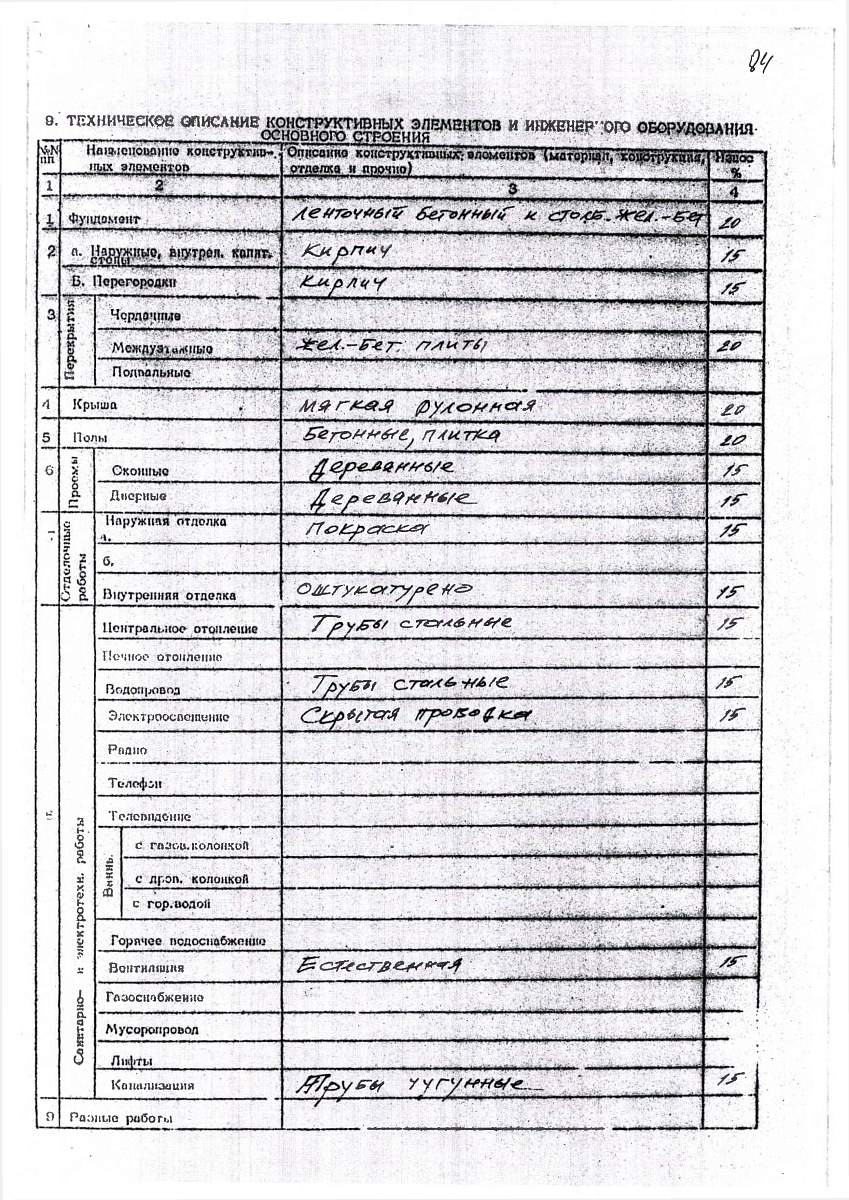 84
9. ТЕХНИЧЕСКОЕ ОПИСАНИЕ КОНСТРУКТИВНЫХ ЭЛЕМЕНТОВ И ИНЖЕНЕР ОГО ОБОРУДОВАНИЯ
ОСНОВНОГО СТРОЕНИЯ
№№ пп Наименование конструктивных элементов Описание конструктивных элементов (материал, конструкция, отделка и прочие) Износ %
1 2 3 4
1 Фундамент Ленточный бетонный и столб. жел.-бет 20
2 а. Наружные, внутрен. капит. стены Кирпич 15
Б. Перегородки Кирпич 15
3 Перекрытия Чердачные
Междуэтажные жел.-бет. плиты 20
Подвальные
4 Крыша мягкая рулонная 20
5 Полы Бетонные, плитка 20
6 Проемы Оконные Деревянные 15
Дверные Деревянные 15
Отделочные работы Наружная отделка а. покраска 15
б.
Внутренняя отделка оштукатурено 15
Санитарно- и электротехн. работы Центральное отопление Трубы стальные 15
Печное отопление
Водопровод Трубы стальные 15
Электроосвещение Скрытая проводка 15
Радио
Телефон
Телевидение
Ванны. с газов.колонкой
с дров. колонкой
с гор.водой
Горячее водоснабжение
Вентиляция Естественная 15
Газоснабжение
Мусоропровод
Лифты
Канализация Трубы чугунные 15
9 Разные работы